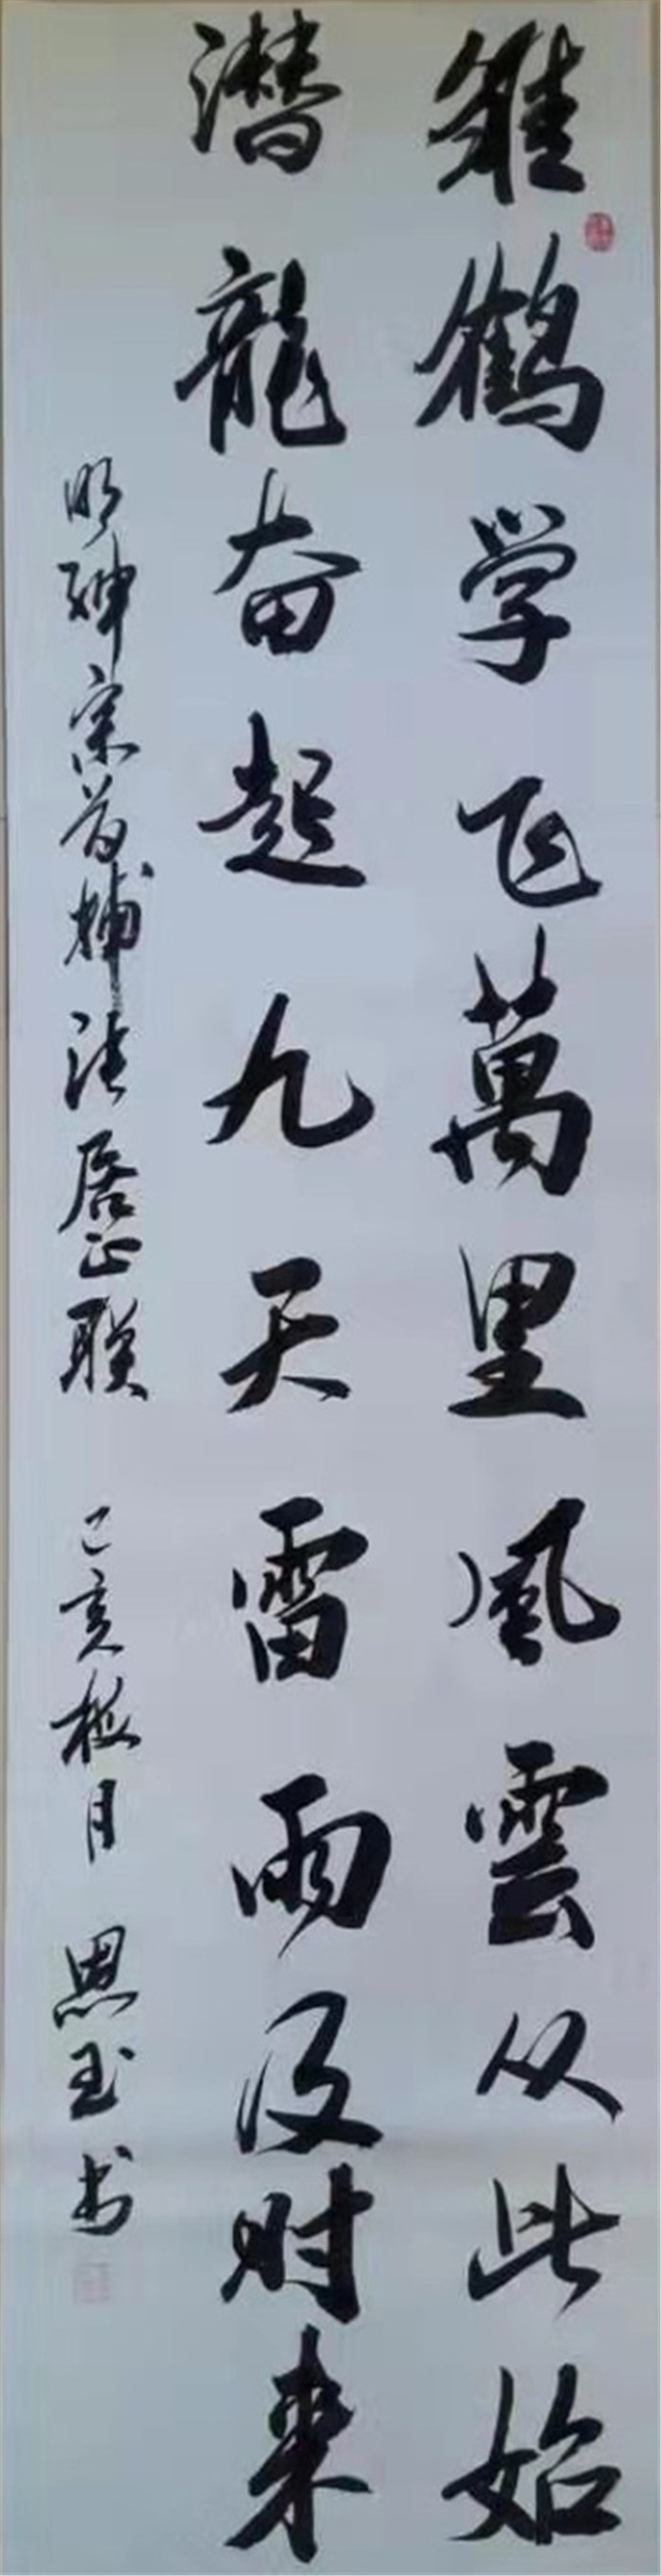 雏鹤学飞萬里風雲从此始
潜龍奋起九天雷雨及时来
明神宗首辅张居正联 己亥桜月 恩玉书